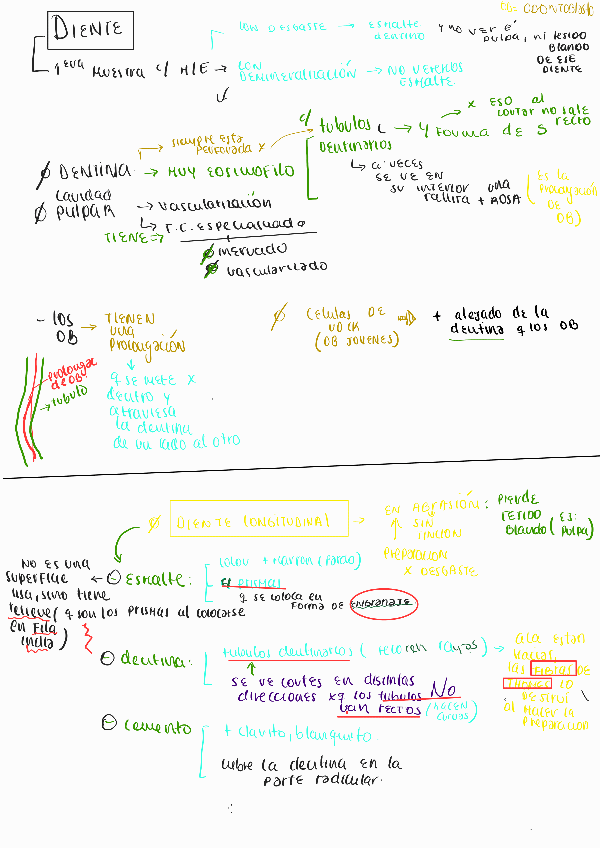 OB= ODONTOBLASTO
DIENTE
1 era MUESTRA c/ H/E
CON DESGASTE → ESMALTE
DENTINA
y no ver é
pulpa, ni tejido
BLANDO
DE ESE
DIENTE
CON
DESMINERALIZACIÓN → NO VEREMOS
ESMALTE
siempre está
perforada x
c/ túbulos
dentinarios
→ y forma de S
* ESO al
cortar no sale
recto
Ø DENTINA → MUY EOSINOFILO
↳ a veces
se ve en
su interior una
rallita + ROSA
(ES la
prolongación
DE
OB)
Cavidad
Ø PULPAR → vascularización
↳ T.C. especializado
TIENE =>
Ø inervado
Ø vascularizado
- los
OB → TIENEN
una
prolongación
q se mete x
dentro y
atraviesa
la dentina
de un lado al otro
prolongac
de OB
→ túbulo
Ø CÉLULAS DE
HOCK
(OB JÓVENES)
⇒ + alejado de la
dentina q los OB
Ø DIENTE LONGITUDINAL
→ EN ABRASIÓN:
↑ SIN
TINCIÓN
PREPARACIÓN
x DESGASTE
PIERDE
TEJIDO
Blando (EJ:
pulpa)
⊖ Esmalte:
color + marrón (pardo)
prismas
q se coloca en
forma de ENGRANAJE
NO ES una
superficie
lisa, sino tiene
relieve (q son los prismas al colocarse
en Fila
india)
⊖ dentina:
túbulos dentinarios (parecen rayas)
SE VE cortes en distintas
direcciones xq los túbulos NO
van rectos (hacen
curvas)
→ acá están
vacías,
las FIBRAS DE
THOMES LO
destruí
al hacer la
preparación
⊖ cemento
+ clarito, blanquito
cubre la dentina en la
parte radicular.